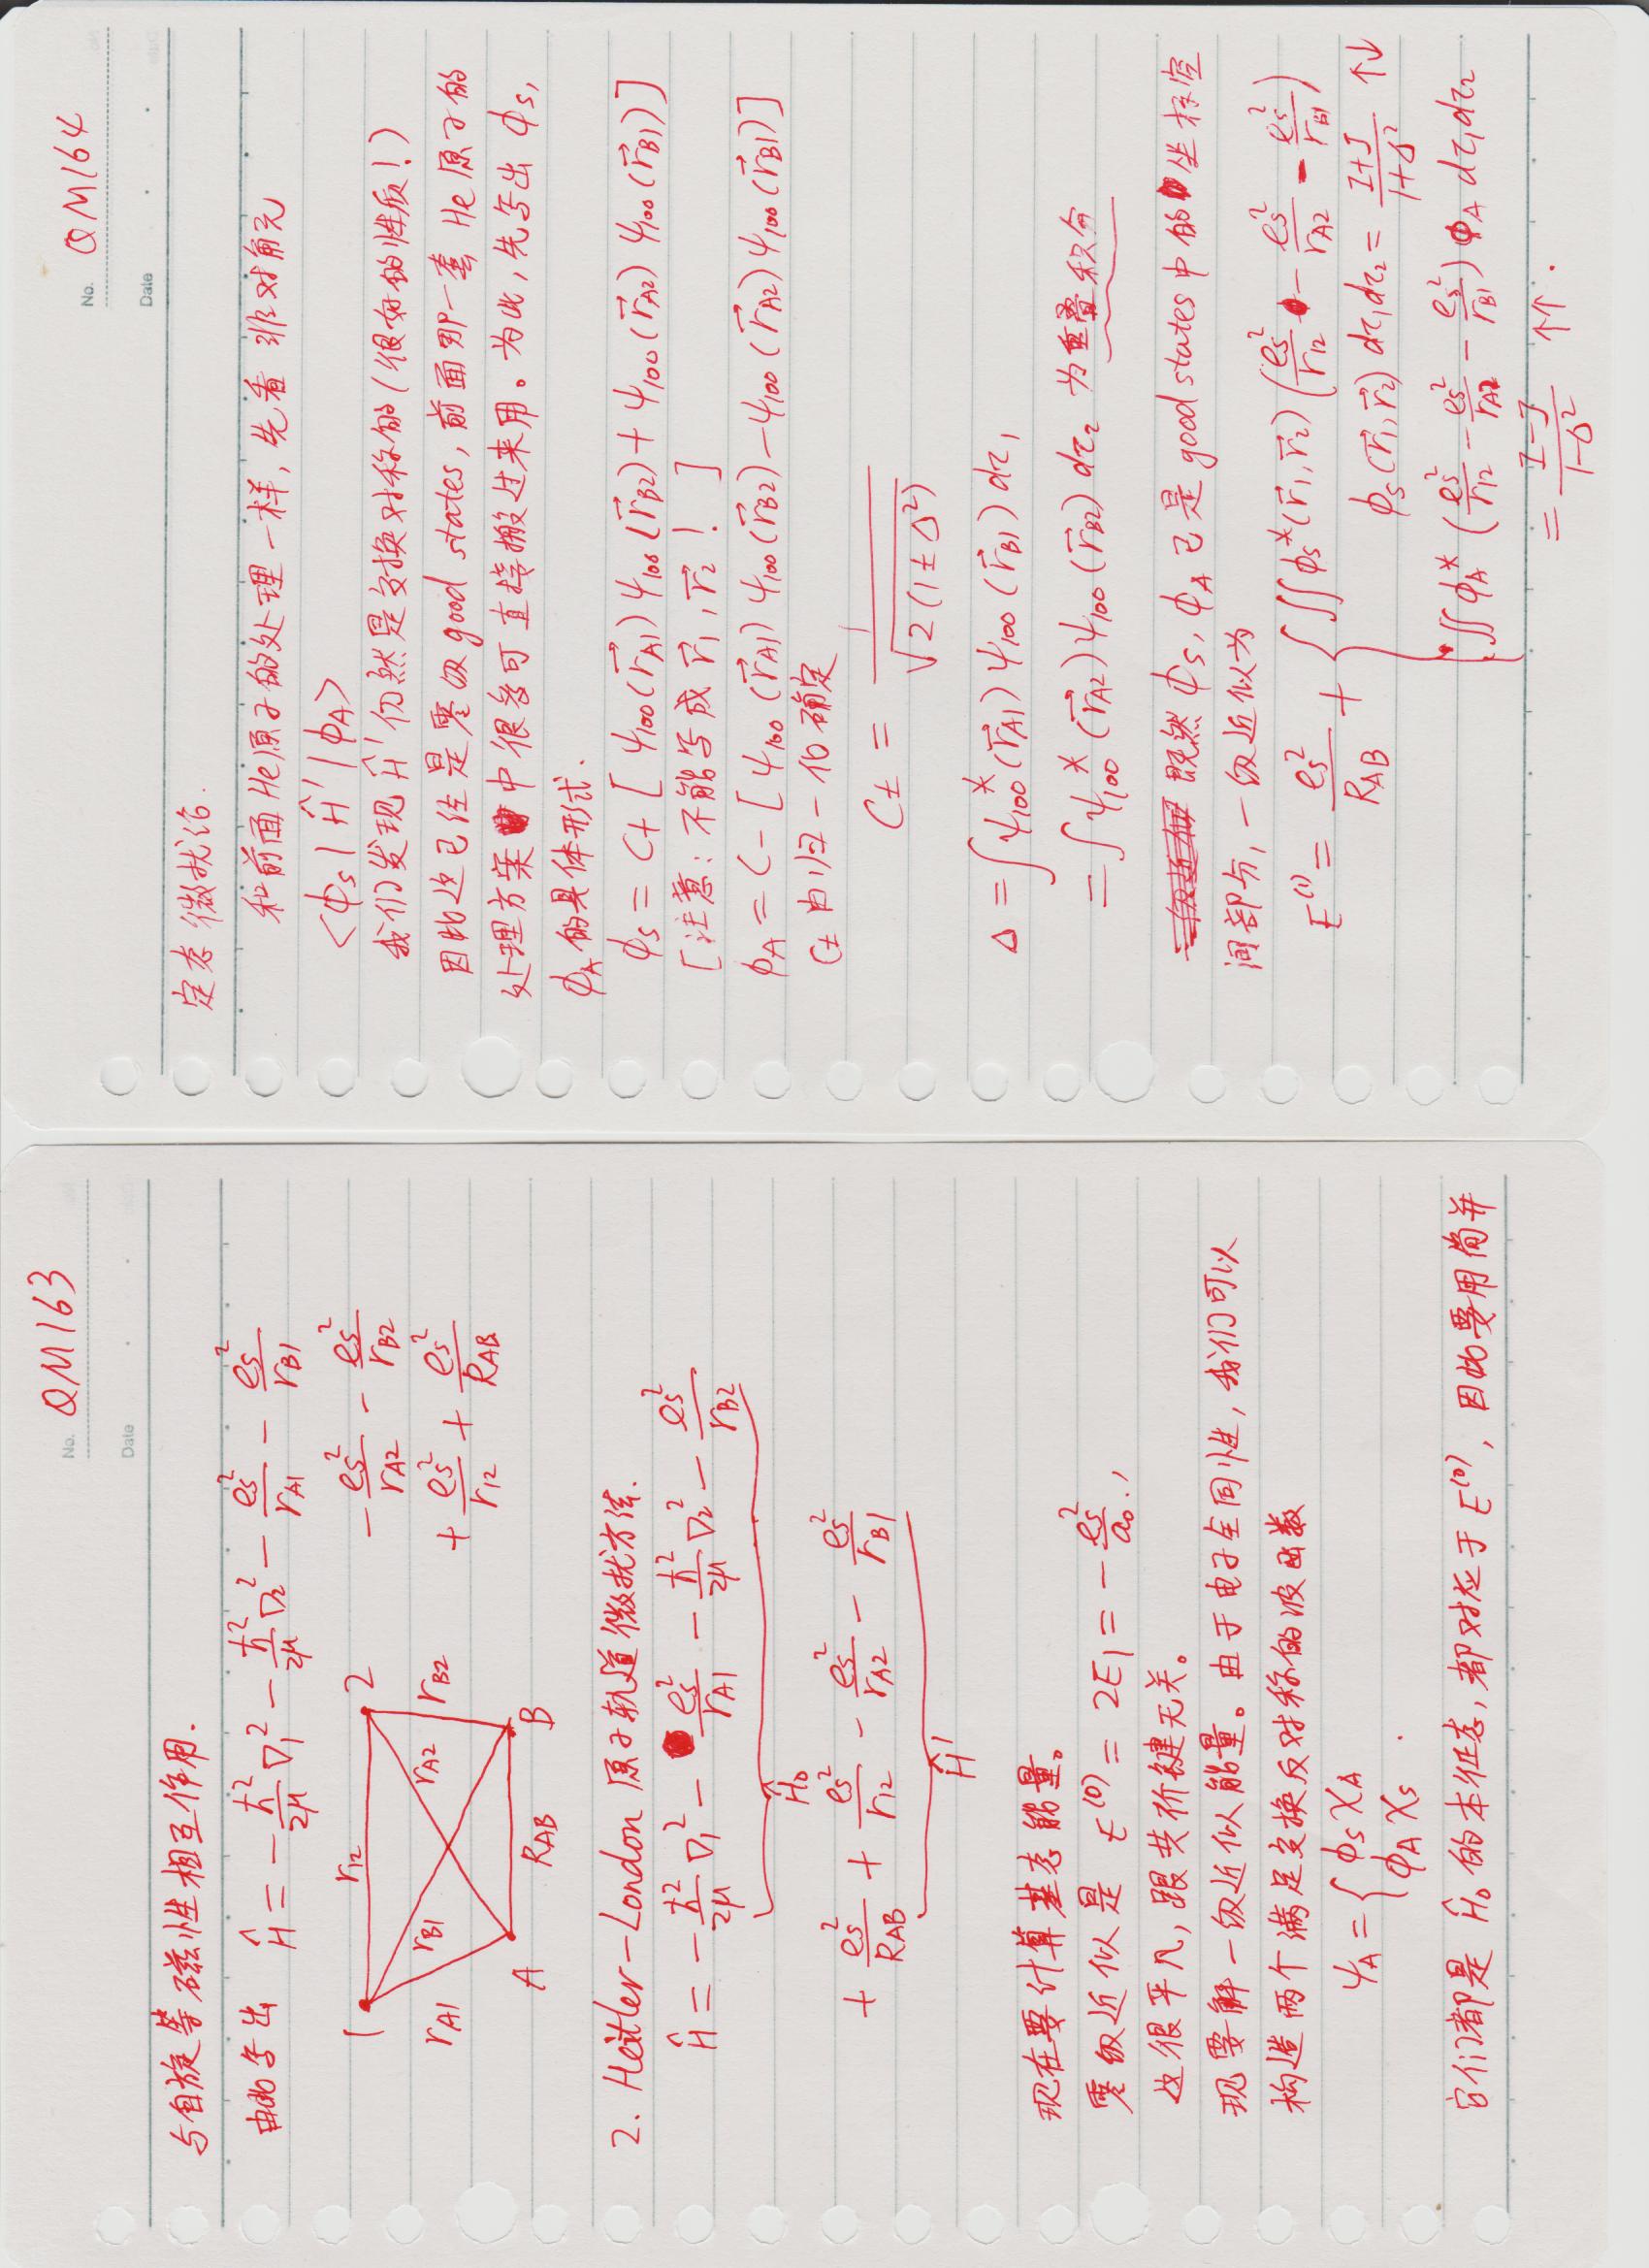 No. QM163
Date
与自旋等磁性相互作用.
由此写出 Ĥ = -ħ²/2μ ∇₁² - ħ²/2μ ∇₂² - eₛ²/r_A1 - eₛ²/r_B1
- eₛ²/r_A2 - eₛ²/r_B2
+ eₛ²/r₁₂ + eₛ²/R_AB
1 r₁₂ 2
r_A1 r_B1 r_A2 r_B2
A R_AB B
2. Heitler-London 原子轨道微扰方法.
Ĥ = -ħ²/2μ ∇₁² - eₛ²/r_A1 - ħ²/2μ ∇₂² - eₛ²/r_B2
Ĥ₀
+ eₛ²/R_AB + eₛ²/r₁₂ - eₛ²/r_A2 - eₛ²/r_B1
Ĥ'
现在要计算基态能量。
零级近似是 E⁽⁰⁾ = 2E₁ = -eₛ²/a₀.,
这很平凡,跟共价键无关。
现要解一级近似能量。由于电子全同性,我们可以
构造两个满足交换反对称的波函数
ψ_A = { ϕ_S χ_A
ϕ_A χ_S .
它们都是 Ĥ₀ 的本征态,都对应于 E⁽⁰⁾, 因此要用简并
No. QM164
Date
定态微扰论.
和前面He原子的处理一样,先看非对角元
<ϕ_S | Ĥ' | ϕ_A>
我们发现 Ĥ' 仍然是交换对称的(很好的性质!)
因此这已经是零级 good states, 前面那一套 He 原子的
处理方案中很多可直接搬过来用。为此,先写出 ϕ_S,
ϕ_A 的具体形式.
ϕ_S = C+ [ψ₁₀₀(r⃗_A1) ψ₁₀₀(r⃗_B2) + ψ₁₀₀(r⃗_A2) ψ₁₀₀(r⃗_B1)]
[注意: 不能写成 r⃗₁, r⃗₂ ! ]
ϕ_A = C- [ψ₁₀₀(r⃗_A1) ψ₁₀₀(r⃗_B2) - ψ₁₀₀(r⃗_A2) ψ₁₀₀(r⃗_B1)]
C± 由归一化确定
C± = 1/√(2(1±Δ²))
Δ = ∫ψ₁₀₀*(r⃗_A1) ψ₁₀₀(r⃗_B1) dτ₁
= ∫ψ₁₀₀*(r⃗_A2) ψ₁₀₀(r⃗_B2) dτ₂ 为重叠积分
既然 ϕ_S, ϕ_A 已是 good states 中的坐标空
间部分, 一级近似为
E⁽¹⁾ = eₛ²/R_AB + { ∬ϕ_S*(r⃗₁,r⃗₂) (eₛ²/r₁₂ - eₛ²/r_A2 - eₛ²/r_B1)
ϕ_S(r⃗₁,r⃗₂) dτ₁dτ₂ = (I+J)/(1+Δ²) ↑↓
∬ϕ_A* (eₛ²/r₁₂ - eₛ²/r_A2 - eₛ²/r_B1) ϕ_A dτ₁dτ₂
= (I-J)/(1-Δ²) ↑↑ .